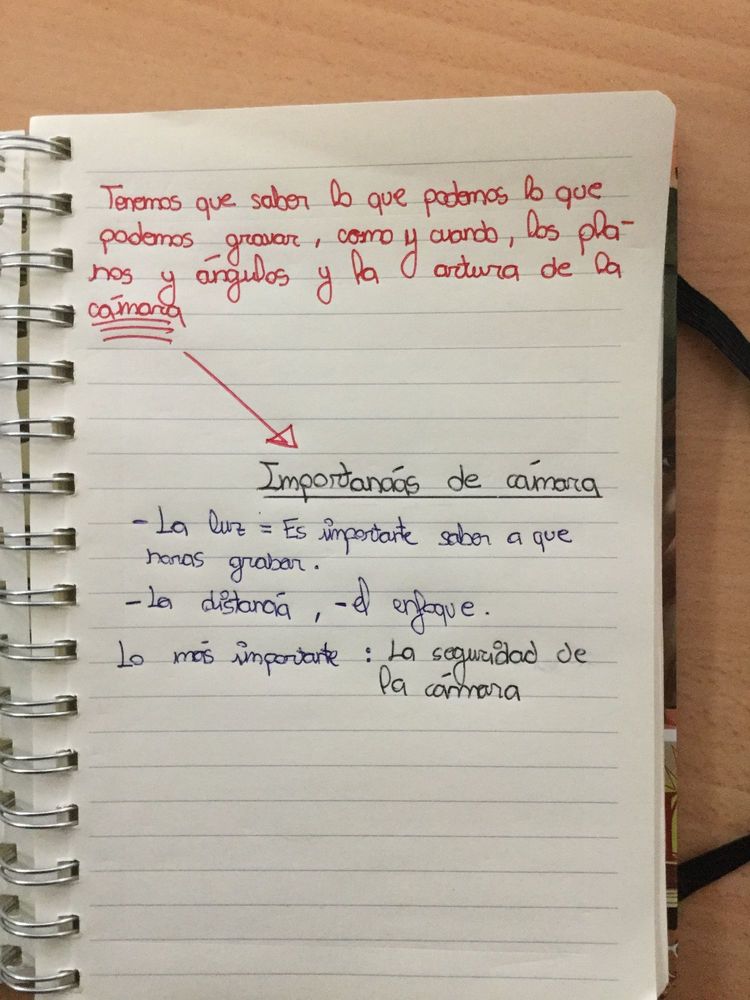 Tenemos que saber lo que podemos lo que
podemos gravar, como y cuando, los pla-
nos y ángulos y la artura de la
cámara
Importancias de cámara
- La luz = Es importante saber a que
horas grabar.
- La distancia, - el enfoque.
Lo más importante : La seguridad de
la cámara